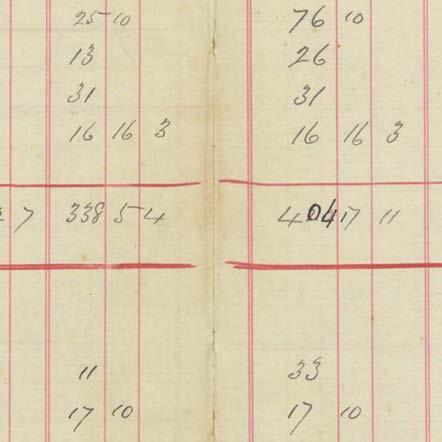 25 10 76 10
13 26
31 31
16 16 3 16 16 3
7 338 5 4 404 17 11
11 33
17 10 17 10